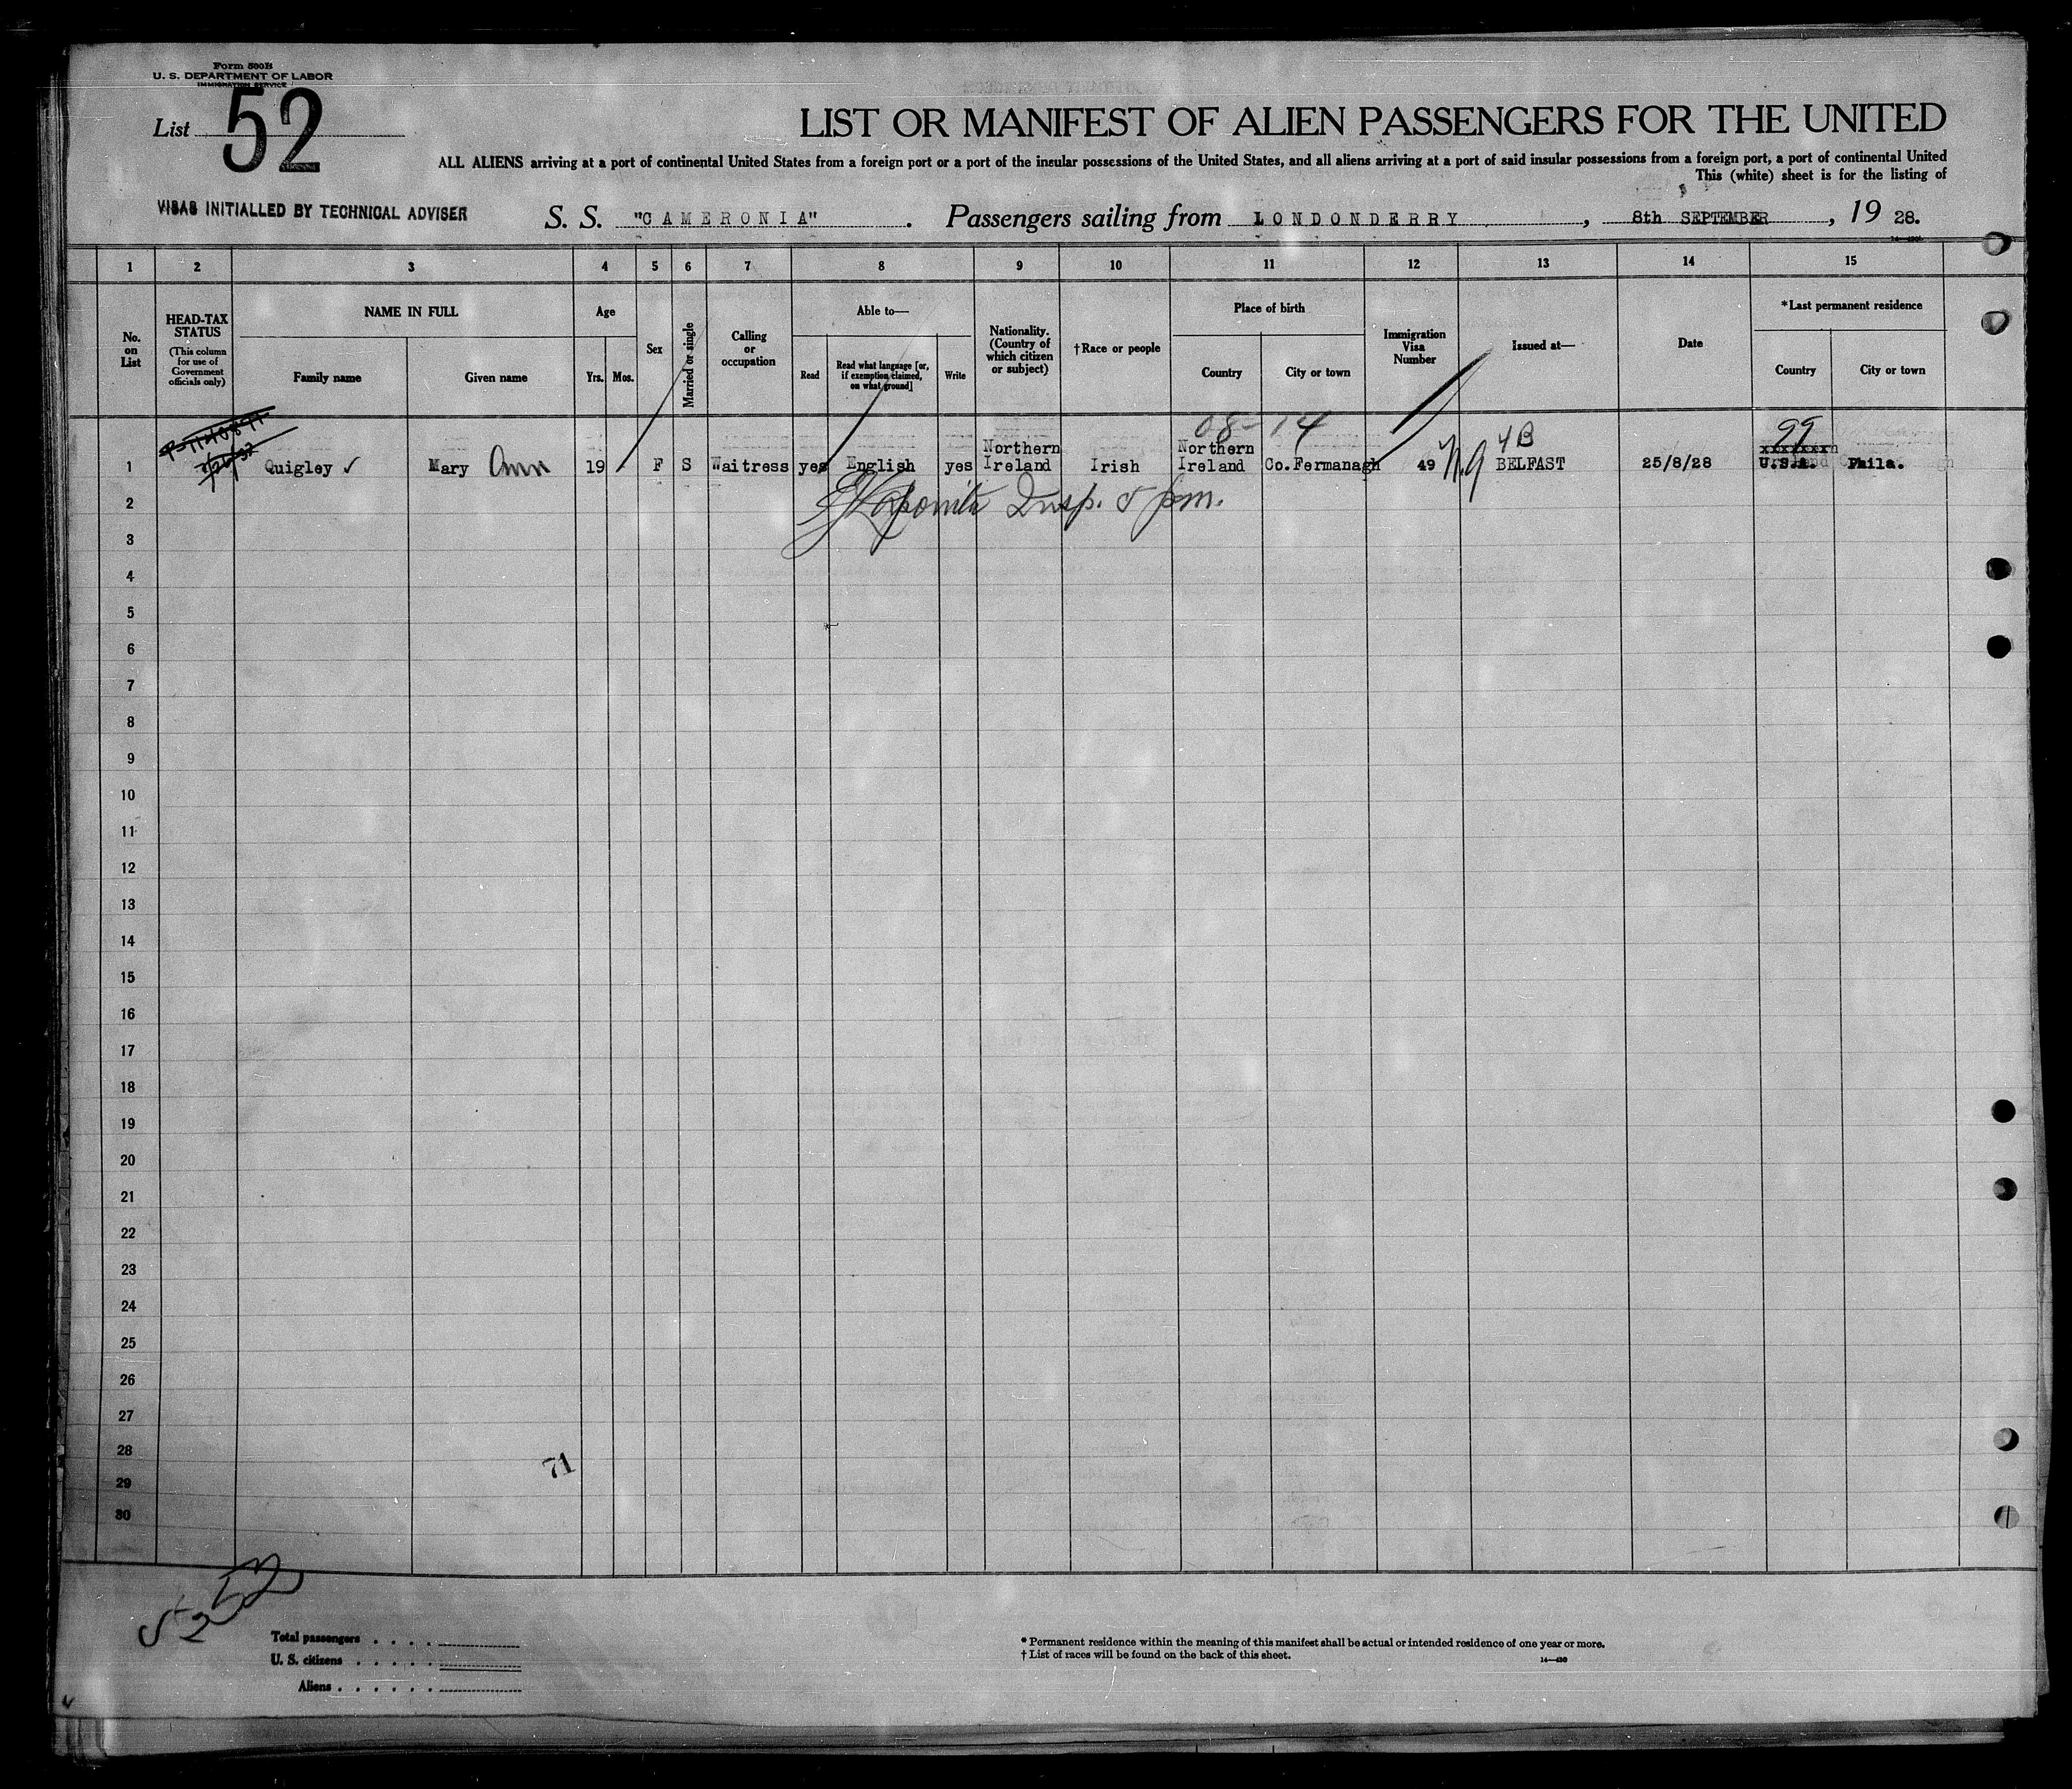 Form 500B
U. S. DEPARTMENT OF LABOR
IMMIGRATION SERVICE
List 52
LIST OR MANIFEST OF ALIEN PASSENGERS FOR THE UNITED
ALL ALIENS arriving at a port of continental United States from a foreign port or a port of the insular possessions of the United States, and all aliens arriving at a port of said insular possessions from a foreign port, a port of continental United
This (white) sheet is for the listing of
VISAS INITIALLED BY TECHNICAL ADVISER
S. S. "CAMERONIA". Passengers sailing from LONDONDERRY, 8th SEPTEMBER, 19 28.
1 2 3 4 5 6 7 8 9 10 11 12 13 14 15
No. on List
HEAD-TAX STATUS
(This column for use of Government officials only)
NAME IN FULL
Family name
Given name
Age
Yrs. Mos.
Sex
Married or single
Calling or occupation
Able to—
Read
Read what language [or, if exemption claimed, on what ground]
Write
Nationality. (Country of which citizen or subject)
†Race or people
Place of birth
Country
City or town
Immigration Visa Number
Issued at—
Date
*Last permanent residence
Country
City or town
08-14
4B
99
1 Quigley ✓ Mary Ann 19 F S Waitress yes English yes Northern Ireland Irish Northern Ireland Co.Fermanagh 49 BELFAST 25/8/28 U.S.A. Phila.
2 Insp.
3
4
5
6
7
8
9
10
11
12
13
14
15
16
17
18
19
20
21
22
23
24
25
26
27
28
71
29
30
Total passengers
U. S. citizens
Aliens
* Permanent residence within the meaning of this manifest shall be actual or intended residence of one year or more.
† List of races will be found on the back of this sheet.
14—430